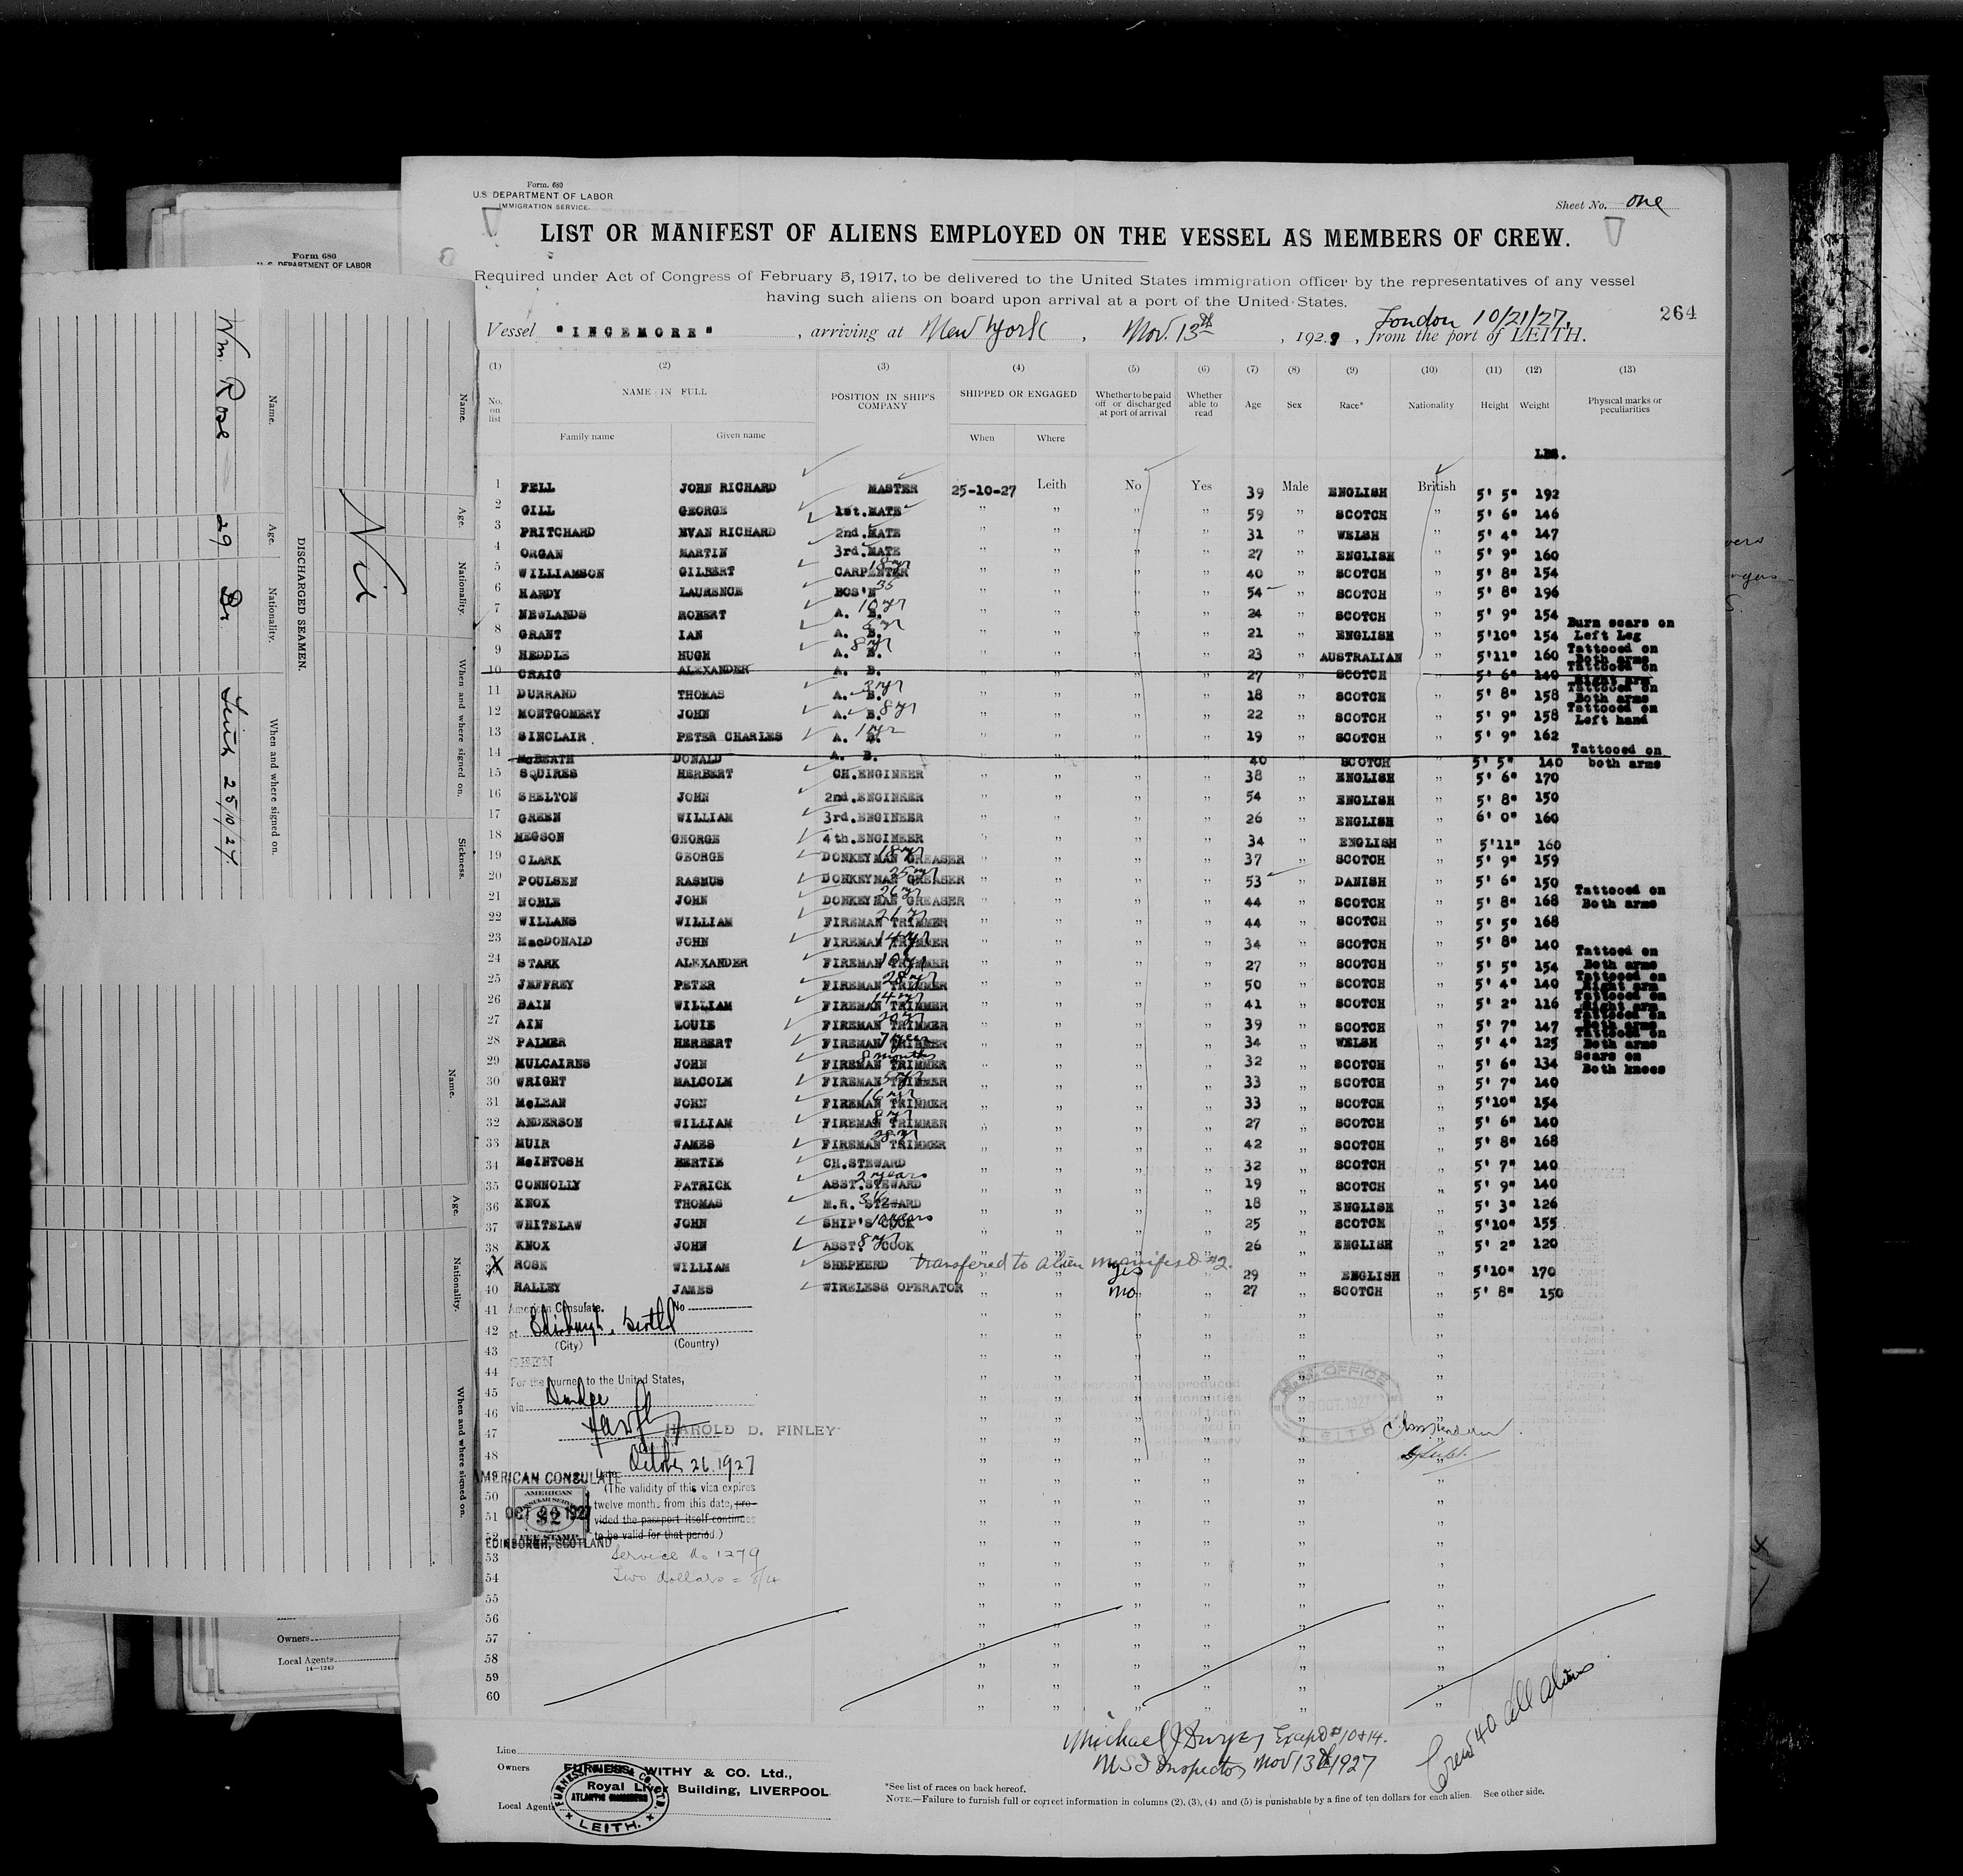 Form. 680
U.S. DEPARTMENT OF LABOR
IMMIGRATION SERVICE.
Sheet No. one
LIST OR MANIFEST OF ALIENS EMPLOYED ON THE VESSEL AS MEMBERS OF CREW.
Required under Act of Congress of February 5, 1917, to be delivered to the United States immigration officer by the representatives of any vessel
having such aliens on board upon arrival at a port of the United States.
264
London 10/21/27,
Vessel "INGEMORE", arriving at New York, Nov. 13th, 192, from the port of LEITH.
(1) (2) (3) (4) (5) (6) (7) (8) (9) (10) (11) (12) (13)
No. on list NAME IN FULL POSITION IN SHIP'S COMPANY SHIPPED OR ENGAGED Whether to be paid off or discharged at port of arrival Whether able to read Age Sex Race* Nationality Height Weight Physical marks or peculiarities
Family name Given name When Where
LBS.
1 FELL JOHN RICHARD MASTER 25-10-27 Leith No Yes 39 Male ENGLISH British 5' 5" 192
2 GILL GEORGE 1st.MATE " " " " 59 " SCOTCH " 5' 6" 146
3 PRITCHARD EVAN RICHARD 2nd.MATE " " " " 31 " WELSH " 5' 4" 147
4 ORGAN MARTIN 3rd.MATE " " " " 27 " ENGLISH " 5' 9" 160
5 WILLIAMSON GILBERT CARPENTER 18yr " " " " 40 " SCOTCH " 5' 8" 154
6 HARDY LAURENCE BOS'N 35 " " " " 54 " SCOTCH " 5' 8" 196
7 NEWLANDS ROBERT A. B. 10yr " " " " 24 " SCOTCH " 5' 9" 154
8 GRANT IAN A. B. " " " " 21 " ENGLISH " 5'10" 154 Burn scars on Left Leg
9 HEDDLE HUGH A. B. 8yr " " " " 23 " AUSTRALIAN " 5'11" 160 Tattooed on Both arms
10 CRAIG ALEXANDER A. B. " " " " 27 " SCOTCH " 5' 6" 140 Tattooed on Right arm
11 DURRAND THOMAS A. B. " " " " 18 " SCOTCH " 5' 8" 158 Tattooed on Both arms
12 MONTGOMERY JOHN A. B. 8yr " " " " 22 " SCOTCH " 5' 9" 158 Tattooed on Left hand
13 SINCLAIR PETER CHARLES A. B. 1yr " " " " 19 " SCOTCH " 5' 9" 162
14 McBEATH DONALD A. B. " " " " 40 " SCOTCH " 5' 5" 140 Tattooed on both arms
15 SQUIRES HERBERT CH.ENGINEER " " " " 38 " ENGLISH " 5' 6" 170
16 SHELTON JOHN 2nd.ENGINEER " " " " 54 " ENGLISH " 5' 8" 150
17 GREEN WILLIAM 3rd.ENGINEER " " " " 26 " ENGLISH " 6' 0" 160
18 MEGSON GEORGE 4th.ENGINEER " " " " 34 " ENGLISH " 5'11" 160
19 CLARK GEORGE DONKEYMAN GREASER 18yr " " " " 37 " SCOTCH " 5' 9" 159
20 POULSEN RASMUS DONKEYMAN GREASER 25yr " " " " 53 " DANISH " 5' 6" 150
21 NOBLE JOHN DONKEYMAN GREASER 26yr " " " " 44 " SCOTCH " 5' 8" 168 Tattooed on Both arms
22 WILLANS WILLIAM FIREMAN TRIMMER 21yr " " " " 44 " SCOTCH " 5' 5" 168
23 MacDONALD JOHN FIREMAN TRIMMER 14yr " " " " 34 " SCOTCH " 5' 8" 140
24 STARK ALEXANDER FIREMAN TRIMMER " " " " 27 " SCOTCH " 5' 5" 154 Tattoed on Both arms
25 JEFFREY PETER FIREMAN TRIMMER 28yr " " " " 50 " SCOTCH " 5' 4" 140 Tattooed on Right arm
26 BAIN WILLIAM FIREMAN TRIMMER 14yr " " " " 41 " SCOTCH " 5' 2" 116 Tattooed on Right arm
27 AIN LOUIE FIREMAN TRIMMER 20yr " " " " 39 " SCOTCH " 5' 7" 147 Tattooed on Both arms
28 PALMER HERBERT FIREMAN TRIMMER 7 years " " " " 34 " WELSH " 5' 4" 125 Tattooed on Both arms
29 MULCAIRNS JOHN FIREMAN TRIMMER 8 months " " " " 32 " SCOTCH " 5' 6" 134 Scars on Both knees
30 WRIGHT MALCOLM FIREMAN TRIMMER 5yr " " " " 33 " SCOTCH " 5' 7" 140
31 McLEAN JOHN FIREMAN TRIMMER 16yr " " " " 33 " SCOTCH " 5'10" 154
32 ANDERSON WILLIAM FIREMAN TRIMMER 8yr " " " " 27 " SCOTCH " 5' 6" 140
33 MUIR JAMES FIREMAN TRIMMER 28yr " " " " 42 " SCOTCH " 5' 8" 168
34 McINTOSH BERTIE CH.STEWARD " " " " 32 " SCOTCH " 5' 7" 140
35 CONNOLLY PATRICK ASST.STEWARD 2 years " " " " 19 " SCOTCH " 5' 9" 140
36 KNOX THOMAS M.R. STEWARD " " " " 18 " ENGLISH " 5' 3" 126
37 WHITELAW JOHN SHIP'S COOK 10 years " " " " 25 " SCOTCH " 5'10" 155
38 KNOX JOHN ASST. COOK 8yr " " " " 26 " ENGLISH " 5' 2" 120
X 39 ROSE WILLIAM SHEPHERD transfered to alien manifest #2. yes 29 " ENGLISH " 5'10" 170
40 HALLEY JAMES WIRELESS OPERATOR " " no " 27 " SCOTCH " 5' 8" 150
41 American Consulate. No
42 at Edinburgh, Scotld
(City) (Country)
43
SEEN
44 For the journey to the United States,
45 via Dundee
46
47 HAROLD D. FINLEY
48 Date October 26 1927
49 AMERICAN CONSULATE
(The validity of this visa expires
50 twelve months from this date, pro-
51 vided the passport itself continues
52 to be valid for that period.)
AMERICAN
CONSULAR SERVICE
$2
FEE STAMP
OCT 26 1927
EDINBURGH, SCOTLAND
53 Service No 1279
54 Two dollars = 8/4
55
56
57
58
59
60
M.M. OFFICE
26 OCT. 1927
LEITH
Michael J Dwyer Except #10 & 14.
U S I Inspector Nov 13th 1927
Crew 40 all aliens
Line
Owners FURNESS, WITHY & CO. Ltd.,
Royal Liver Building, LIVERPOOL
Local Agents
FURNESS, WITHY & CO. LTD.
ATLANTIC CHAMBERS
LEITH.
*See list of races on back hereof.
NOTE.—Failure to furnish full or correct information in columns (2), (3), (4) and (5) is punishable by a fine of ten dollars for each alien. See other side.
Form 680
U. S. DEPARTMENT OF LABOR
Name. Age. Nationality. When and where signed on. Sickness.
Nil
DISCHARGED SEAMEN.
Name. Age. Nationality. When and where signed on.
Wm. Rose 29 Br. Leith 25/10/27.
Name. Age. Nationality. When and where signed on.
Owners
Local Agents
14—1240